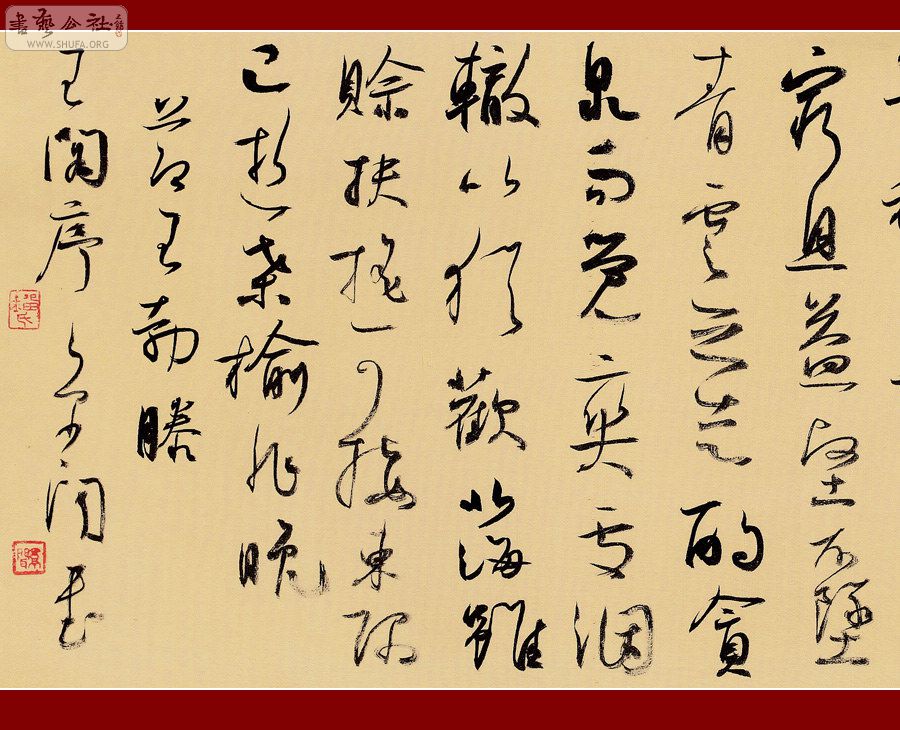 書藝公社
WWW.SHUFA.ORG
窮且益堅不墜
青雲之志酌貪
泉而覺爽處涸
轍以猶歡北海雖
賒扶搖可接東隅
已逝桑榆非晚
節王勃滕
王閣序 書